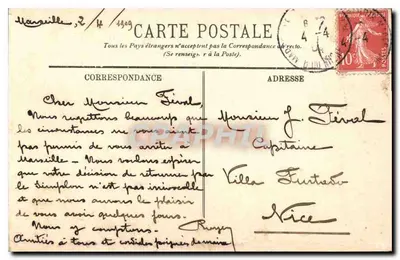 Marseille, 2/4 1909
CARTE POSTALE
Tous les Pays étrangers n'acceptent pas la Correspondance au recto.
(Se renseigner à la Poste).
CORRESPONDANCE
ADRESSE
Cher Monsieur Féval,
Nous regrettons beaucoup que
les circonstances ne vous aient
pas permis de vous arrêter à
Marseille - Nous voulons espérer
que votre décision de retourner par
le Simplon n'est pas irrévocable
et que nous aurons le plaisir
de vous avoir quelques jours.
Nous y comptons.
Amitiés à tous et cordiales poignées de main
Monsieur J. Féval
Capitaine
Villa Furtado
Nice